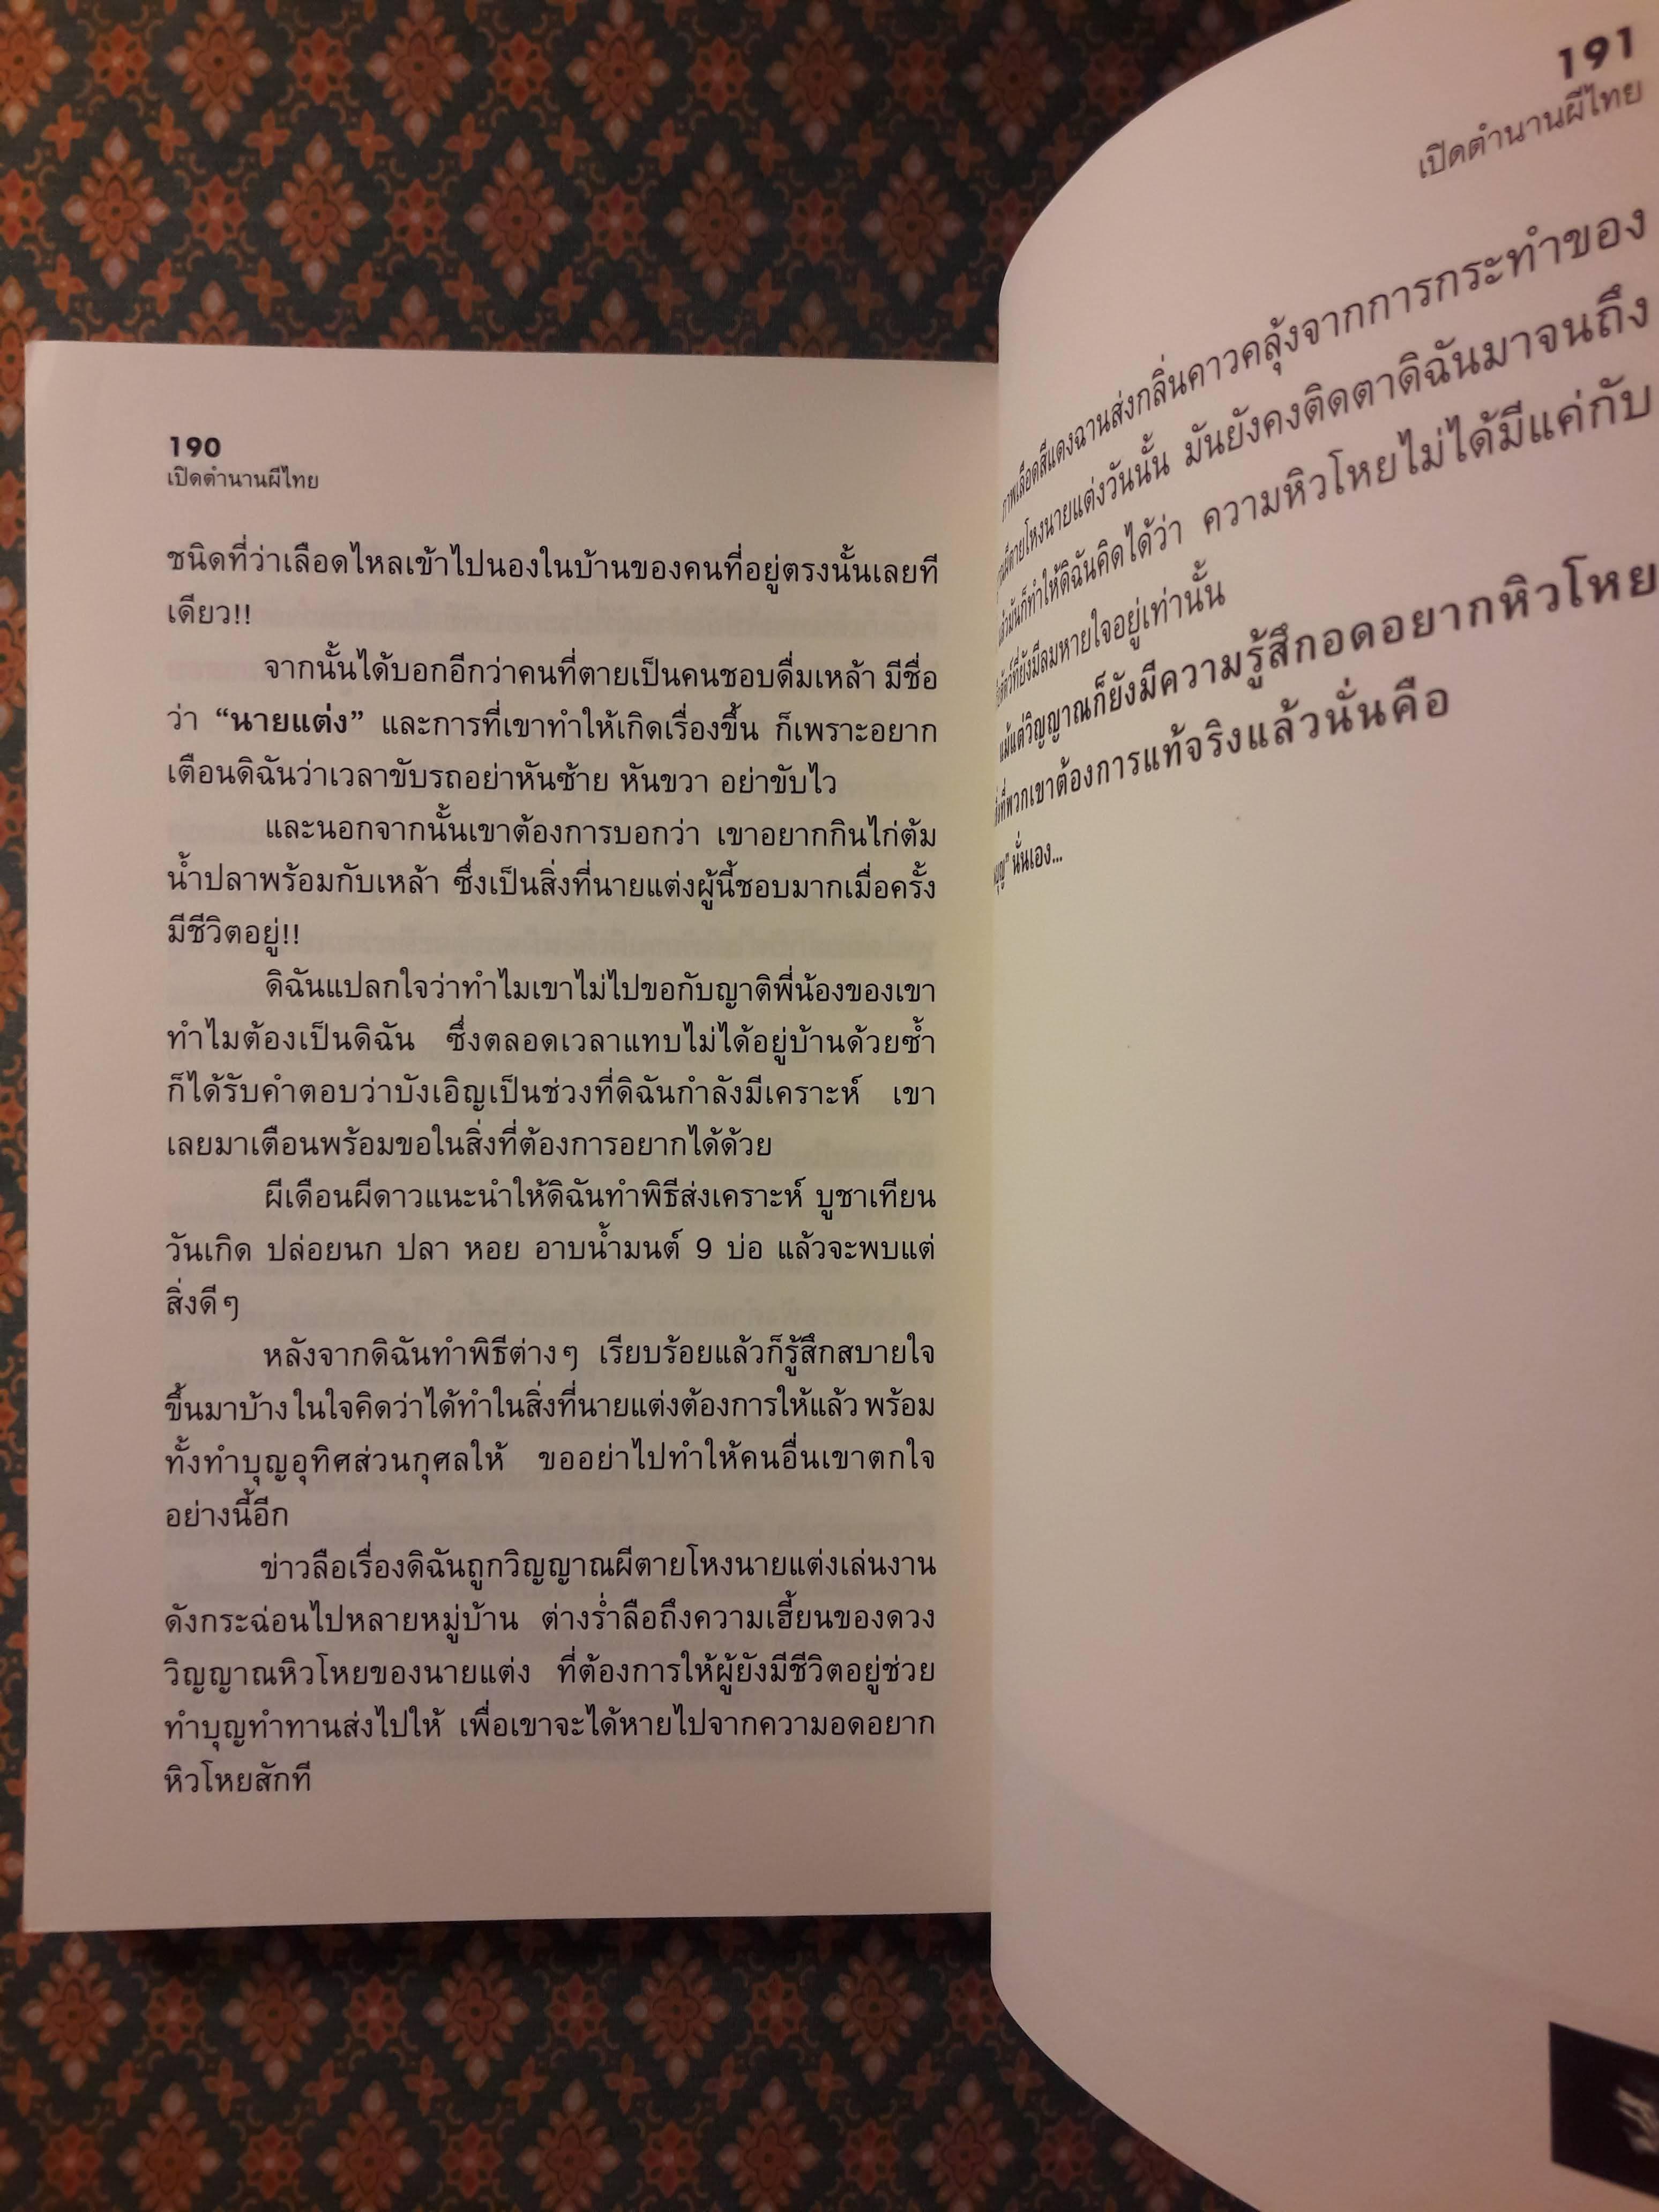 190
เปิดตำนานผีไทย
ชนิดที่ว่าเลือดไหลเข้าไปนองในบ้านของคนที่อยู่ตรงนั้นเลยที
เดียว!!
จากนั้นได้บอกอีกว่าคนที่ตายเป็นคนชอบดื่มเหล้า มีชื่อ
ว่า “นายแต่ง” และการที่เขาทำให้เกิดเรื่องขึ้น ก็เพราะอยาก
เตือนดิฉันว่าเวลาขับรถอย่าหันซ้าย หันขวา อย่าขับไว
และนอกจากนั้นเขาต้องการบอกว่า เขาอยากกินไก่ต้ม
น้ำปลาพร้อมกับเหล้า ซึ่งเป็นสิ่งที่นายแต่งผู้นี้ชอบมากเมื่อครั้ง
มีชีวิตอยู่!!
ดิฉันแปลกใจว่าทำไมเขาไม่ไปขอกับญาติพี่น้องของเขา
ทำไมต้องเป็นดิฉัน ซึ่งตลอดเวลาแทบไม่ได้อยู่บ้านด้วยซ้ำ
ก็ได้รับคำตอบว่าบังเอิญเป็นช่วงที่ดิฉันกำลังมีเคราะห์ เขา
เลยมาเตือนพร้อมขอในสิ่งที่ต้องการอยากได้ด้วย
ผีเดือนผีดาวแนะนำให้ดิฉันทำพิธีส่งเคราะห์ บูชาเทียน
วันเกิด ปล่อยนก ปลา หอย อาบน้ำมนต์ 9 บ่อ แล้วจะพบแต่
สิ่งดีๆ
หลังจากดิฉันทำพิธีต่างๆ เรียบร้อยแล้วก็รู้สึกสบายใจ
ขึ้นมาบ้าง ในใจคิดว่าได้ทำในสิ่งที่นายแต่งต้องการให้แล้ว พร้อม
ทั้งทำบุญอุทิศส่วนกุศลให้ ขออย่าไปทำให้คนอื่นเขาตกใจ
อย่างนี้อีก
ข่าวลือเรื่องดิฉันถูกวิญญาณผีตายโหงนายแต่งเล่นงาน
ดังกระฉ่อนไปหลายหมู่บ้าน ต่างร่ำลือถึงความเฮี้ยนของดวง
วิญญาณหิวโหยของนายแต่ง ที่ต้องการให้ผู้ยังมีชีวิตอยู่ช่วย
ทำบุญทำทานส่งไปให้ เพื่อเขาจะได้หายไปจากความอดอยาก
หิวโหยสักที
191
เปิดตำนานผีไทย
ภาพเลือดสีแดงฉานส่งกลิ่นคาวคลุ้งจากการกระทำของ
ผีตายโหงนายแต่งวันนั้น มันยังคงติดตาดิฉันมาจนถึง
มันก็ทำให้ดิฉันคิดได้ว่า ความหิวโหยไม่ได้มีแค่กับ
ที่ยังมีลมหายใจอยู่เท่านั้น
แม้แต่วิญญาณก็ยังมีความรู้สึกอดอยากหิวโหย
ที่พวกเขาต้องการแท้จริงแล้วนั่นคือ
นั่นเอง...